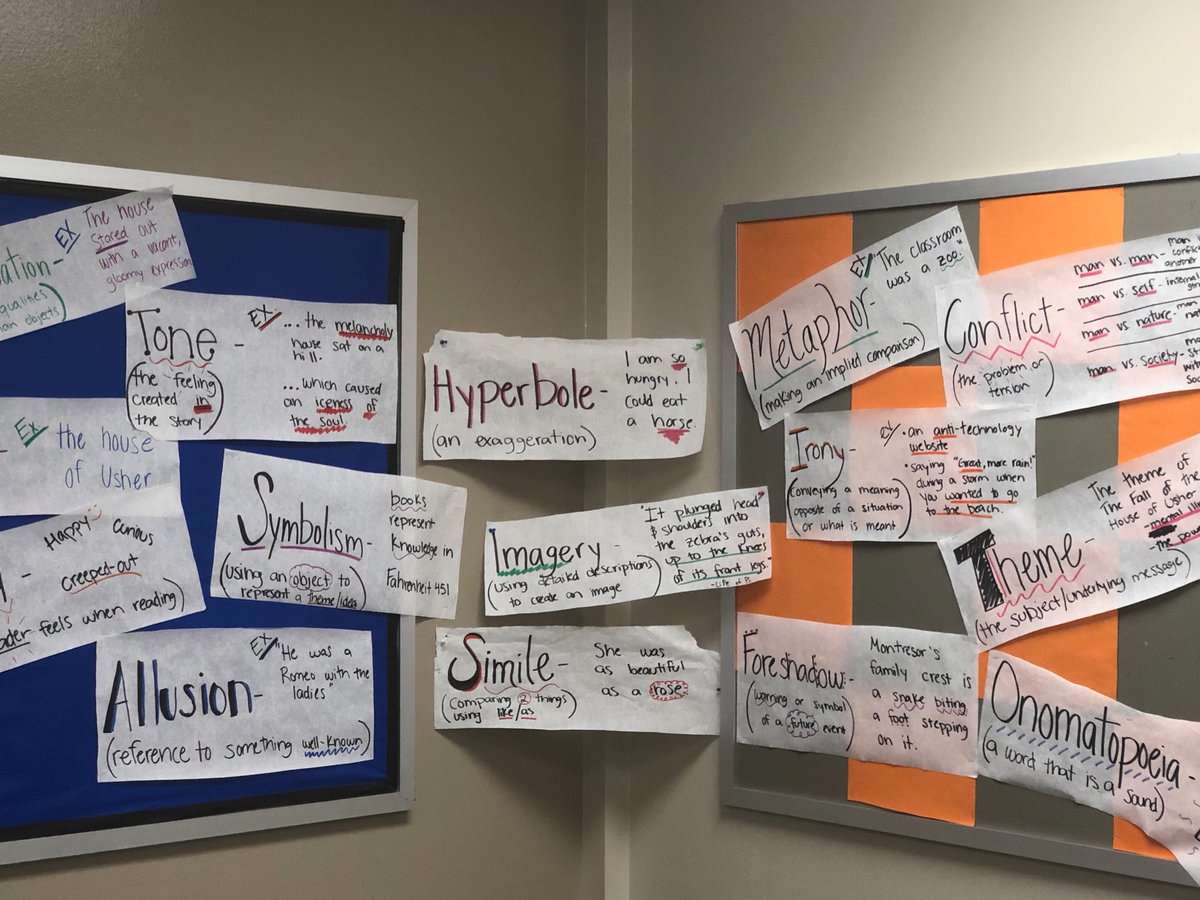 EX The house
stared out
with a vacant,
gloomy expression
qualities
objects)
Tone -
(the feeling
created in
the story)
EX ... the melancholy
house sat on a
hill.
...which caused
an iceness of
the soul.
Ex the house
of Usher
Happy
Curious
creeped-out
feels when reading)
Symbolism-
(using an object to
represent a theme/idea)
books
represent
knowledge in
Fahrenheit 451
Allusion-
(reference to something well-known)
EX "He was a
Romeo with the
ladies"
Hyperbole-
(an exaggeration)
I am so
hungry. I
could eat
a horse.
Imagery-
(using detailed descriptions)
to create an image
"It plunged head
& shoulders into
the zebra's guts,
up to the knees
of its front legs."
-Life of Pi
Simile-
(comparing 2 things)
using like/as
She was
as beautiful
as a rose
Metaphor-
(making an implied comparison)
EX "The classroom
was a zoo."
Conflict-
(the problem or
tension)
man vs. man-
another
man vs. self- internal
man vs. nature-
man vs. society-
Irony-
(conveying a meaning
opposite of a situation
or what is meant)
EX • an anti-technology
website
• saying "Great, more rain!"
during a storm when
you wanted to go
to the beach.
Theme-
(the subject/underlying message)
The theme of
Fall of the
House of Usher
-mental
-the
Foreshadow-
(warning or symbol
of a future event)
Montresor's
family crest is
a snake biting
a foot stepping
on it.
Onomatopoeia-
(a word that is a sound)